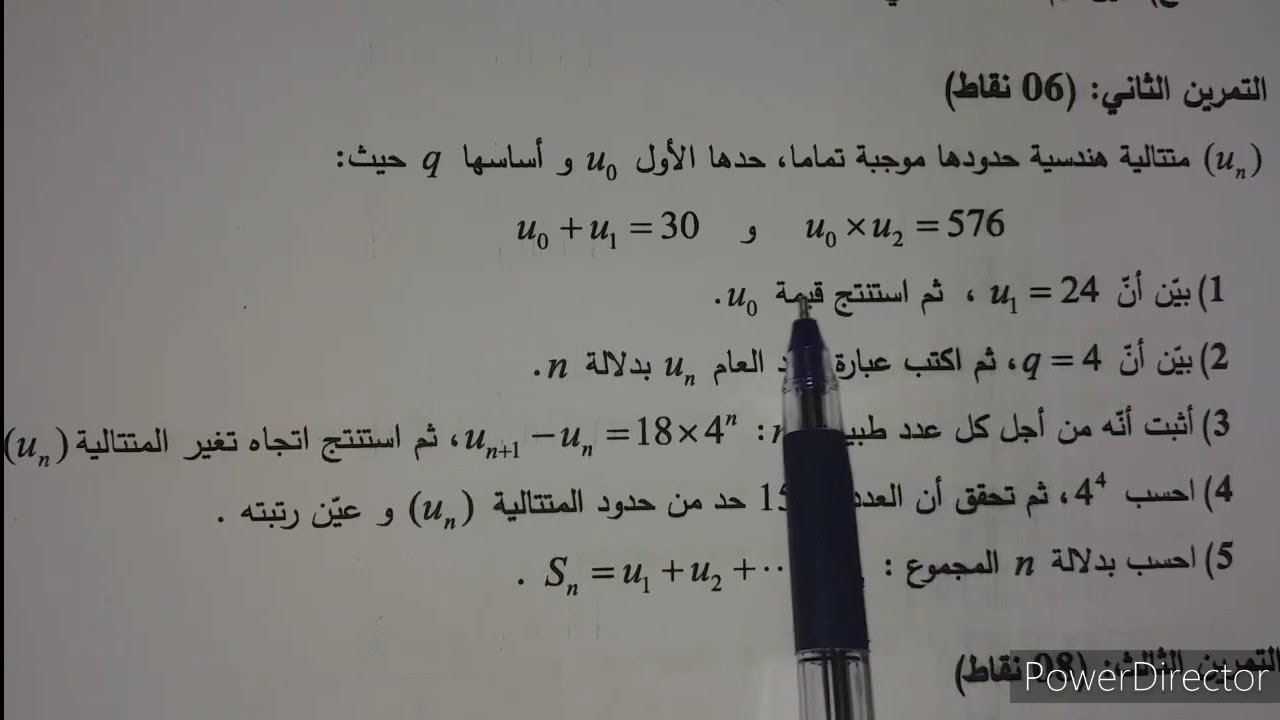 التمرين الثاني: (06 نقاط)
(uₙ) متتالية هندسية حدودها موجبة تماما، حدها الأول u₀ و أساسها q حيث:
u₀ × u₂ = 576 و u₀ + u₁ = 30
1) بيّن أنّ u₁ = 24 ، ثم استنتج قيمة u₀.
2) بيّن أنّ q = 4، ثم اكتب عبارة العام uₙ بدلالة n.
3) أثبت أنّه من أجل كل عدد : uₙ₊₁ − uₙ = 18 × 4ⁿ، ثم استنتج اتجاه تغير المتتالية (uₙ)
4) احسب 4⁴، ثم تحقق أن العدد حد من حدود المتتالية (uₙ) و عيّن رتبته .
5) احسب بدلالة n المجموع : Sₙ = u₁ + u₂ + ⋯ .
التمرين الثالث: (08 نقاط)
PowerDirector